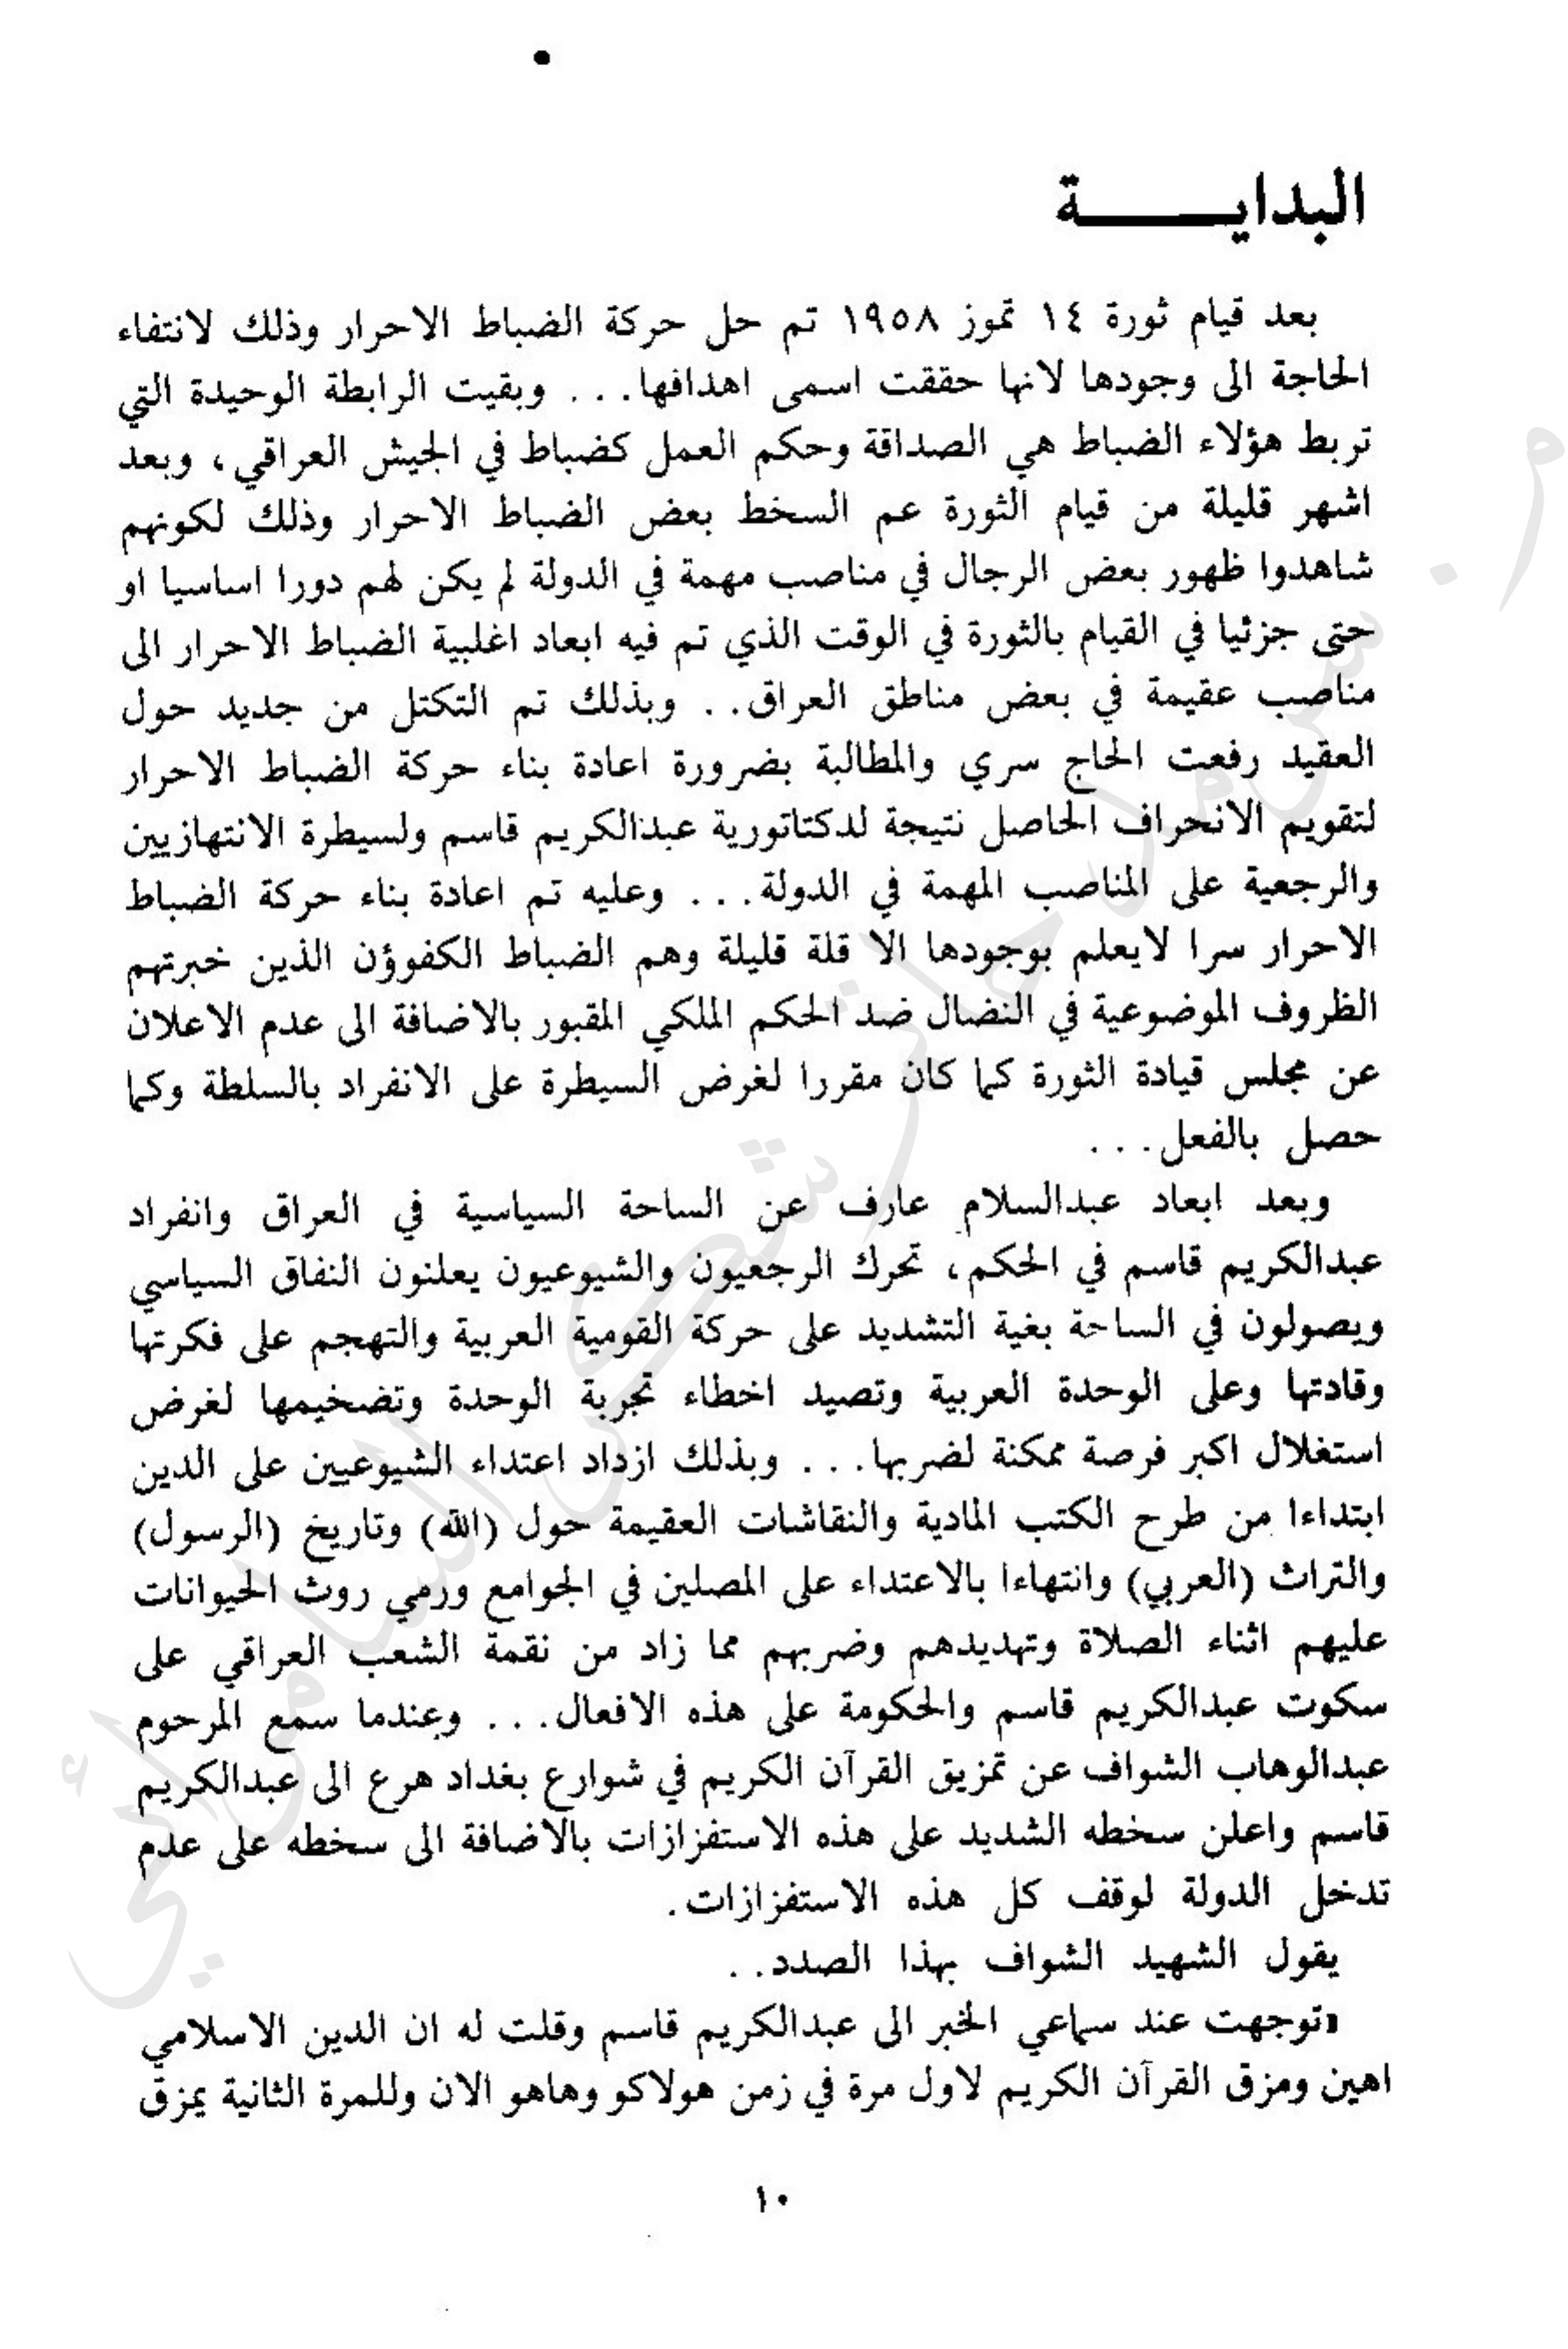 البدايـــــــة
بعد قيام ثورة ١٤ تموز ١٩٥٨ تم حل حركة الضباط الاحرار وذلك لانتفاء
الحاجة الى وجودها لانها حققت اسمى اهدافها... وبقيت الرابطة الوحيدة التي
تربط هؤلاء الضباط هي الصداقة وحكم العمل كضباط في الجيش العراقي، وبعد
اشهر قليلة من قيام الثورة عم السخط بعض الضباط الاحرار وذلك لكونهم
شاهدوا ظهور بعض الرجال في مناصب مهمة في الدولة لم يكن لهم دورا اساسيا او
حتى جزئيا في القيام بالثورة في الوقت الذي تم فيه ابعاد اغلبية الضباط الاحرار الى
مناصب عقيمة في بعض مناطق العراق.. وبذلك تم التكتل من جديد حول
العقيد رفعت الحاج سري والمطالبة بضرورة اعادة بناء حركة الضباط الاحرار
لتقويم الانحراف الحاصل نتيجة لدكتاتورية عبدالكريم قاسم ولسيطرة الانتهازيين
والرجعية على المناصب المهمة في الدولة... وعليه تم اعادة بناء حركة الضباط
الاحرار سرا لايعلم بوجودها الا قلة قليلة وهم الضباط الكفوؤن الذين خبرتهم
الظروف الموضوعية في النضال ضد الحكم الملكي المقبور بالاضافة الى عدم الاعلان
عن مجلس قيادة الثورة كما كان مقررا لغرض السيطرة على الانفراد بالسلطة وكما
حصل بالفعل...
وبعد ابعاد عبدالسلام عارف عن الساحة السياسية في العراق وانفراد
عبدالكريم قاسم في الحكم، تحرك الرجعيون والشيوعيون يعلنون النفاق السياسي
ويصولون في الساحة بغية التشديد على حركة القومية العربية والتهجم على فكرتها
وقادتها وعلى الوحدة العربية وتصيد اخطاء تجربة الوحدة وتضخيمها لغرض
استغلال اكبر فرصة ممكنة لضربها... وبذلك ازداد اعتداء الشيوعيين على الدين
ابتداءا من طرح الكتب المادية والنقاشات العقيمة حول (الله) وتاريخ (الرسول)
والتراث (العربي) وانتهاءا بالاعتداء على المصلين في الجوامع ورمي روث الحيوانات
عليهم اثناء الصلاة وتهديدهم وضربهم مما زاد من نقمة الشعب العراقي على
سكوت عبدالكريم قاسم والحكومة على هذه الافعال... وعندما سمع المرحوم
عبدالوهاب الشواف عن تمزيق القرآن الكريم في شوارع بغداد هرع الى عبدالكريم
قاسم واعلن سخطه الشديد على هذه الاستفزازات بالاضافة الى سخطه على عدم
تدخل الدولة لوقف كل هذه الاستفزازات.
يقول الشهيد الشواف بهذا الصدد..
«توجهت عند سماعي الخبر الى عبدالكريم قاسم وقلت له ان الدين الاسلامي
اهين ومزق القرآن الكريم لاول مرة في زمن هولاكو وهاهو الان وللمرة الثانية يمزق
١٠
م. سرمد حاتم شكر السامرائي